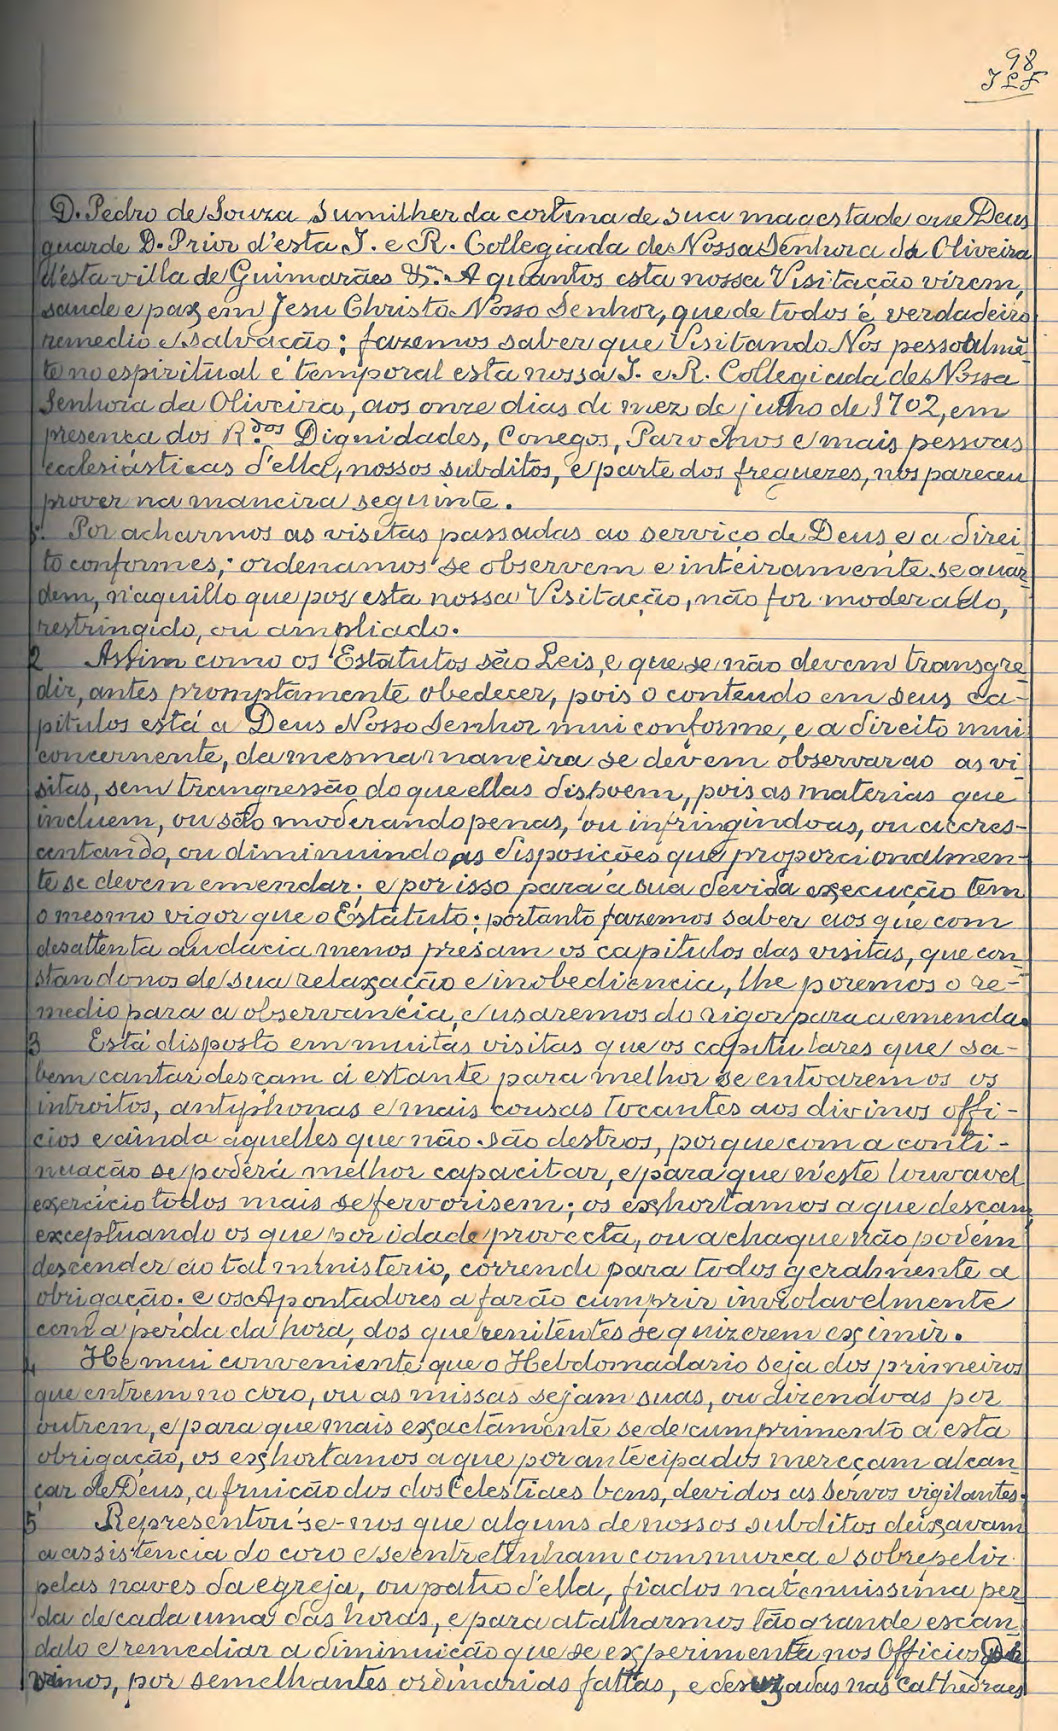 98
J L F
D. Pedro de Souza Sumilher da cortina de sua magestade que Deus
guarde D. Prior d'esta I. e R. Collegiada de Nossa Senhora da Oliveira
d'esta villa de Guimarães &ª. A quantos esta nossa Visitação virem,
saude e paz em Jesu Christo Nosso Senhor, que de todos é verdadeiro
remedio e salvação: fazemos saber que Visitando Nos pessoalmẽ-
te no espiritual e temporal esta nossa I. e R. Collegiada de Nossa
Senhora da Oliveira, aos onze dias di mez de julho de 1702, em
presença dos R.dos Dignidades, Conegos, Parochos e mais pessoas
ecclesiásticas d'ella, nossos subditos, e parte dos freguezes, nos pareceu
prover na maneira seguinte.
1. Por acharmos as visitas passadas ao serviço de Deus e a direi-
to conformes; ordenamos se observem e inteiramente se guar-
dem, n'aquillo que por esta nossa Visitação, não for moderado,
restringido, ou ampliado.
2 Assim como os Estatutos são Leis, e que se não devem transgre-
dir, antes promptamente obedecer, pois o contendo em seus ca-
pitulos está a Deus Nosso Senhor mui conforme, e a direito mui
concernente, da mesma maneira se devem observar ao as vi-
sitas, sem trangressão do que ellas dispoem, pois as materias que
incluem, ou são moderando penas, ou infringindo-as, ou accres-
centando, ou diminuindo as disposições que proporcionalmen-
te se devem emendar; e por isso para a sua devida execução tem
o mesmo vigor que o Estatuto; portanto fazemos saber aos que com
desattenta audacia menos presam os capitulos das visitas, que con-
stando nos de sua relaxação e inobediencia, lhe poremos o re-
medio para a observancia, e usaremos do rigor para a emenda.
3 Está disposto em muitas visitas que os capitulares que sa-
bem cantar desçam á estante para melhor se entoarem os os
introitos, antyphonas e mais cousas tocantes aos divinos offi-
cios e ainda aquelles que não são destros, porque com a conti-
nuação se poderá melhor capacitar, e para que n'este louvavel
exercicio todos mais se fervorisem; os exhortamos a que desçam,
exceptuando os que por idade provecta, ou achaque não podem
descender ao tal ministerio, correndo para todos geralmente a
obrigação; e os Apontadores a farão cumprir inviolavelmente
com a perda da hora, dos que renitentes se quizerem eximir.
4 He mui conveniente que o Hebdomadario seja dos primeiros
que entrem no coro, ou as missas sejam suas, ou dizendo-as por
outrem, e para que mais exactamente se de cumprimento a esta
obrigação, os exhortamos a que por antecipados mereçam alcan-
çar de Deus, a fruição dos dos Celestiaes bens, devidos as servos vigilantes.
5 Representou-se-nos que alguns de nossos subditos deixavam
a assistencia do coro e se entretinham com murça e sobrepeliz
pelas naves da egreja, ou patio d'ella, fiados na tenuissima per-
da de cada uma das horas, e para atalharmos tão grande escan-
dalo e remediar a diminuição que se experimenta nos Officios Di-
vinos, por semelhantes ordinarias faltas, e desuzadas nas Cathedraes